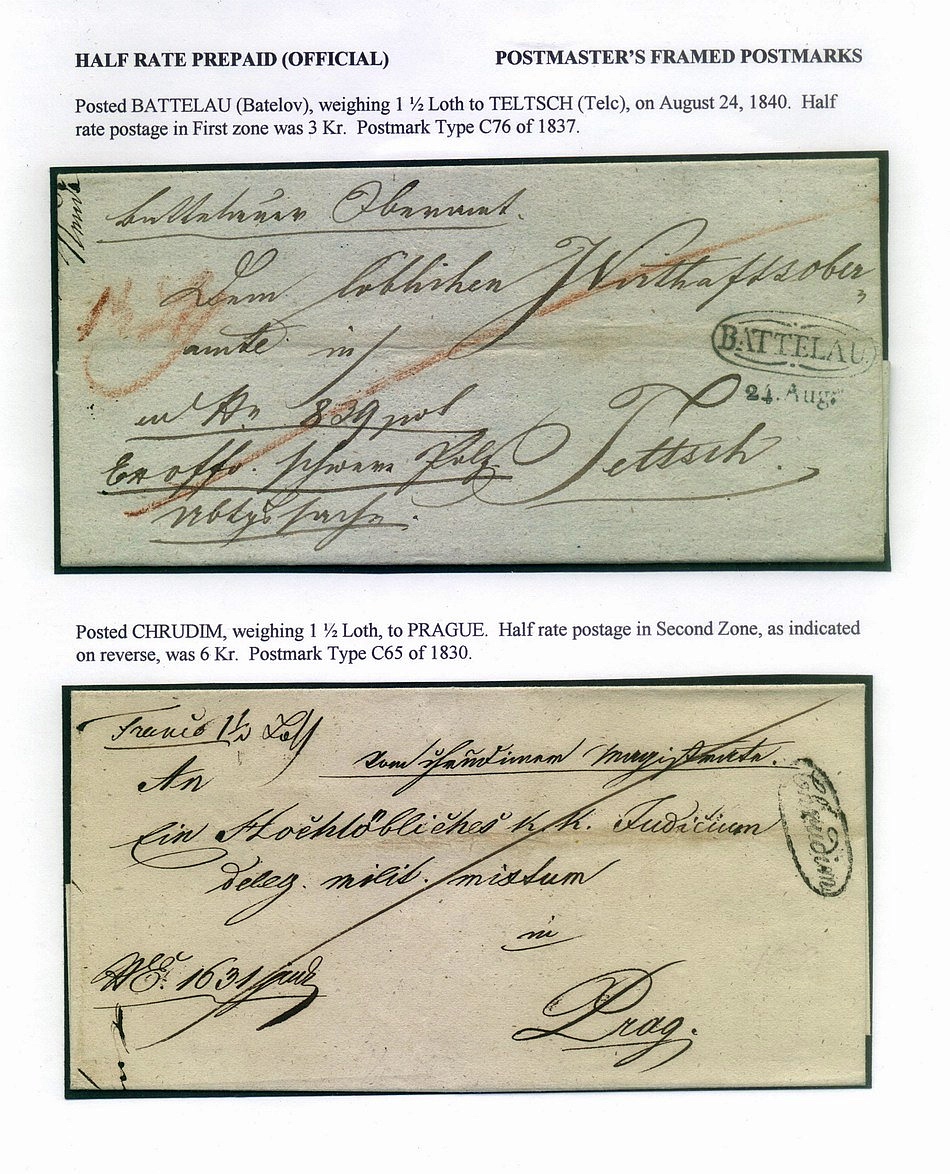 HALF RATE PREPAID (OFFICIAL) POSTMASTER'S FRAMED POSTMARKS
Posted BATTELAU (Batelov), weighing 1 ½ Loth to TELTSCH (Telc), on August 24, 1840. Half
rate postage in First zone was 3 Kr. Postmark Type C76 of 1837.
Battelauer Oberamt.
Dem löblichen Wirthschaftsober
amte in
BATTELAU
24. Aug:
839 pol
Teltsch.
Ex offo. schwere Polz
Posted CHRUDIM, weighing 1 ½ Loth, to PRAGUE. Half rate postage in Second Zone, as indicated
on reverse, was 6 Kr. Postmark Type C65 of 1830.
Franco 1½ Loth
Vom Chrudimer Magistrate.
An
Chrudim
Ein Hochlöbliches k. k. Judicium
deleg. milit. mixtum
in
NE. 1631 jud
Prag.